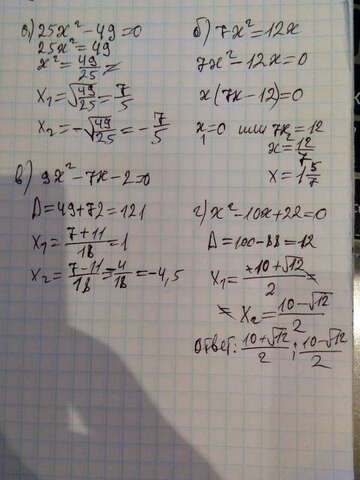 а) 25x² - 49 = 0
25x² = 49
x² = 49/25 =
x₁ = √(49/25) = 7/5
x₂ = -√(49/25) = -7/5
б) 7x² = 12x
7x² - 12x = 0
x(7x - 12) = 0
x₁ = 0 или 7x₂ = 12
x = 12/7
x = 1 5/7
в) 9x² - 7x - 2 = 0
Д = 49 + 72 = 121
x₁ = (7 + 11)/18 = 1
x₂ = (7 - 11)/18 = -4/18 = -4,5
г) x² - 10x + 22 = 0
Д = 100 - 88 = 12
x₁ = (+10 + √12)/2 =
= x₂ = (10 - √12)/2
ответ: (10 + √12)/2 ; (10 - √12)/2